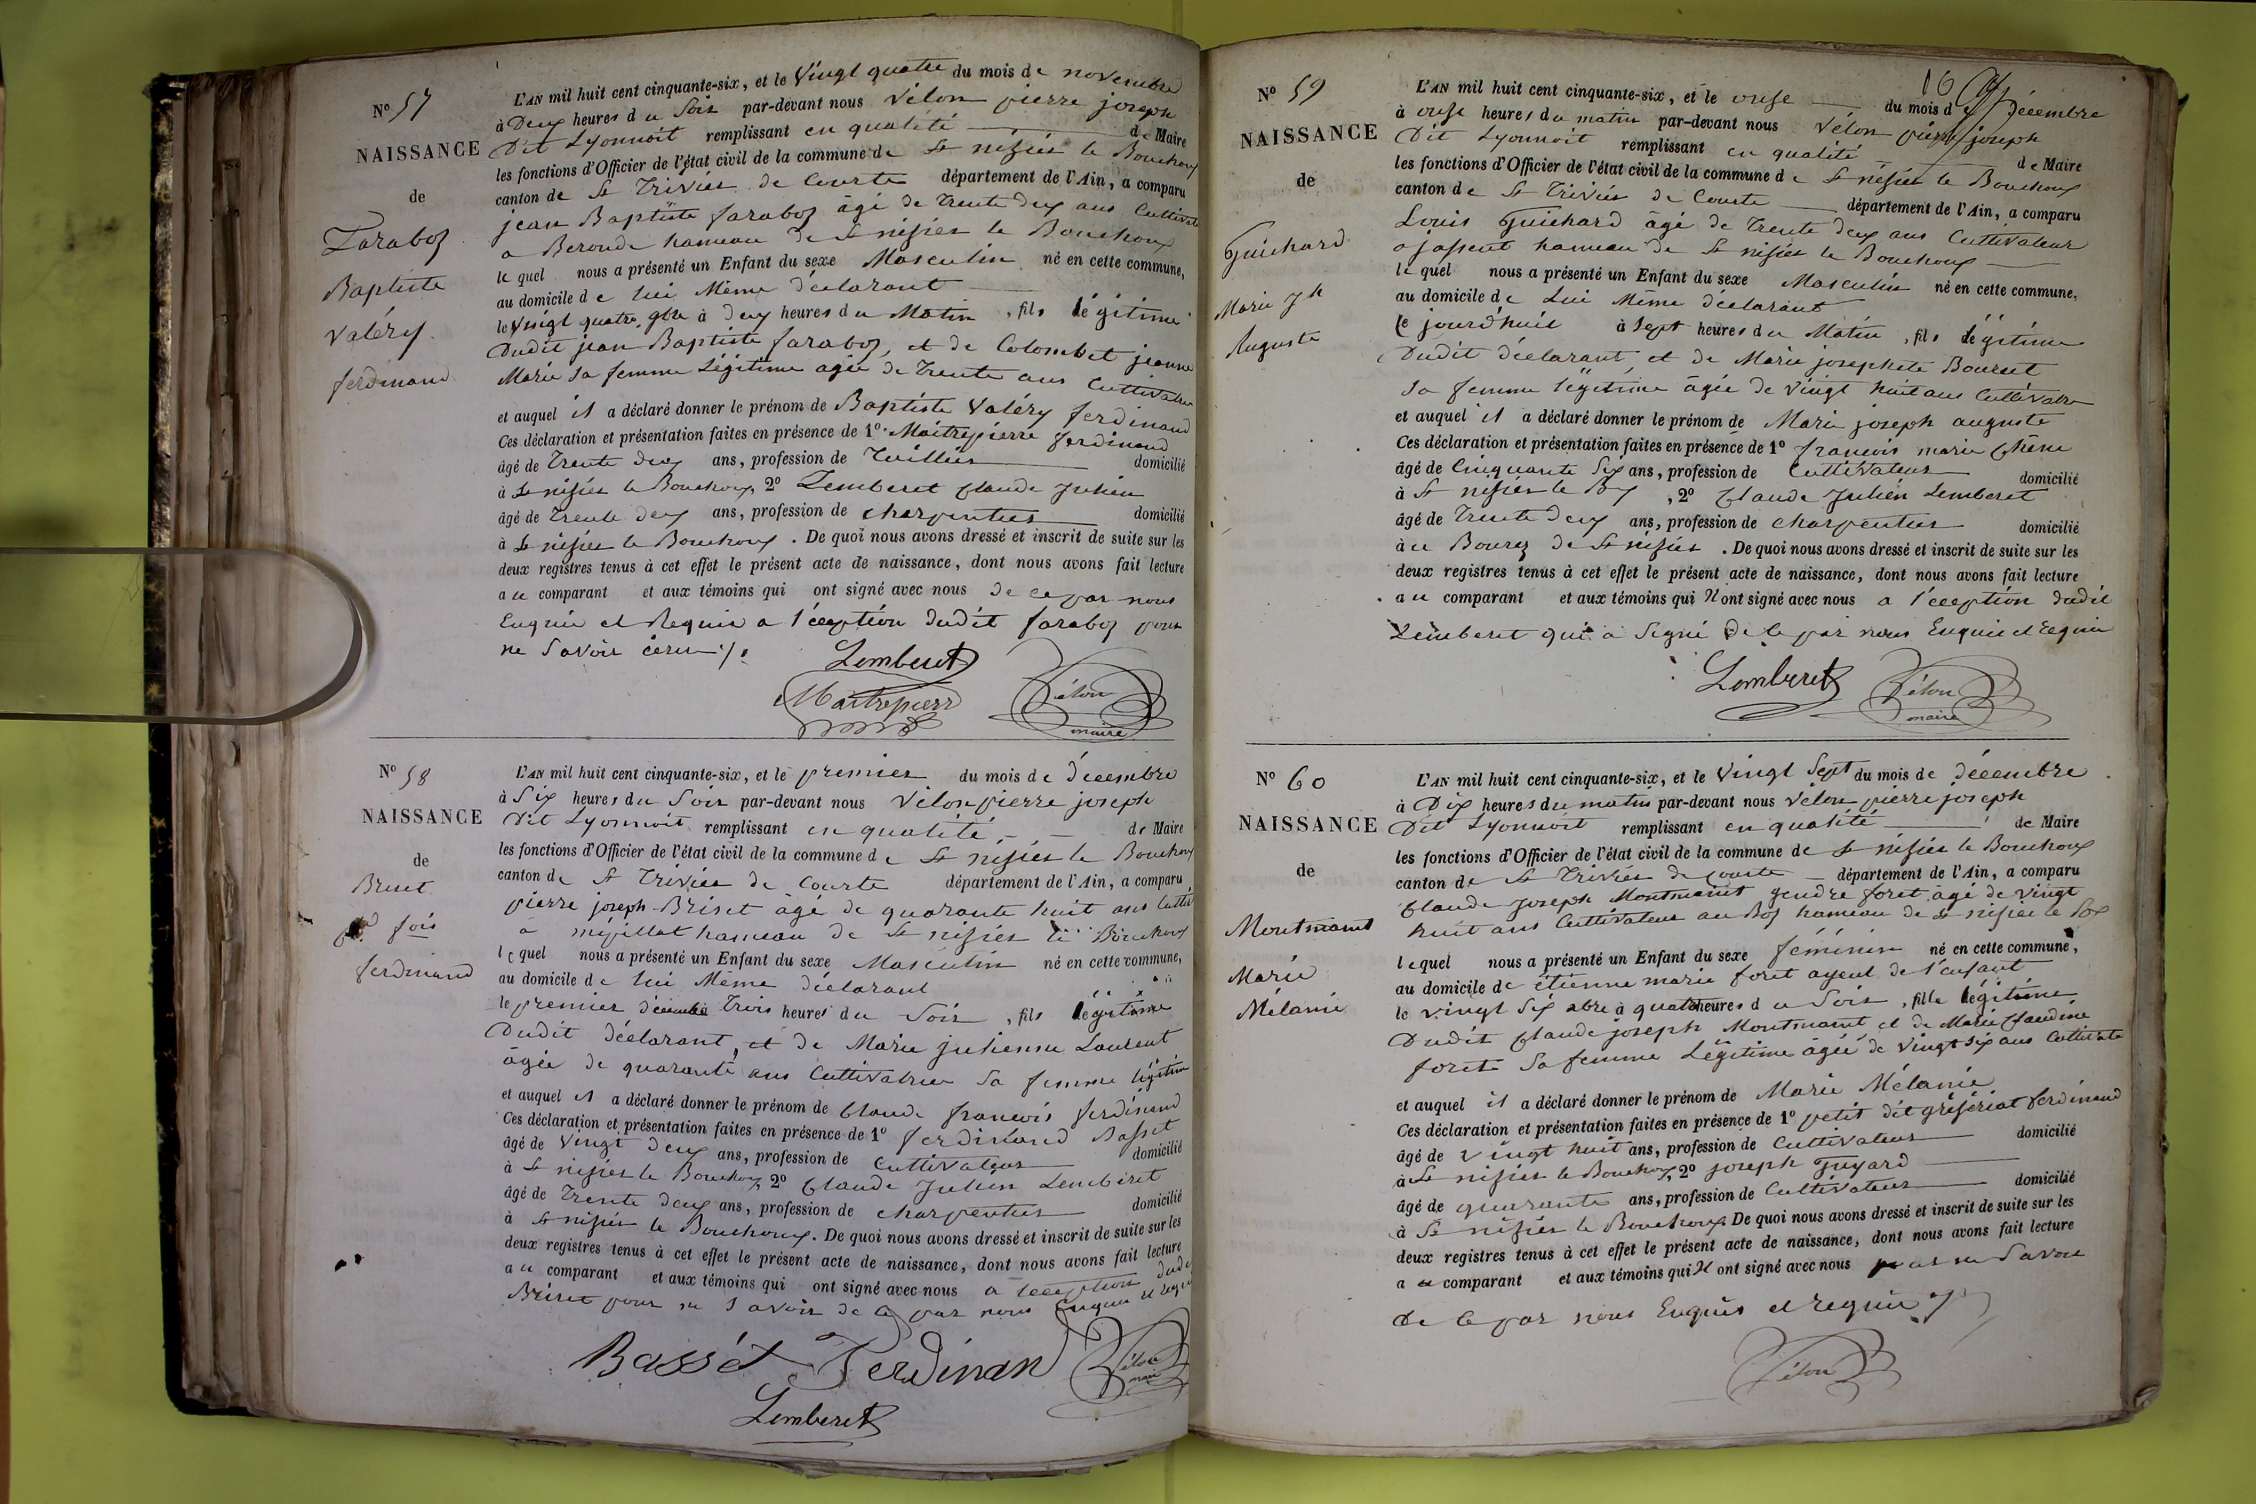 N° 57
NAISSANCE
de
Faraboz
Baptiste
Valéry
ferdinand
L'AN mil huit cent cinquante-six, et le Vingt quatre du mois de novembre
à Deux heures du Soir par-devant nous Vélon pierre joseph
Dit Lyonnoit remplissant en qualité de Maire
les fonctions d'Officier de l'état civil de la commune de St nésiér le Bouchoux
canton de St Triviér de Courte département de l'Ain, a comparu
jean Baptiste faraboz âgé de Trente deux ans Cultivat
a hameau de St nésiér le Bouchoux
le quel nous a présenté un Enfant du sexe Masculin né en cette commune,
au domicile de lui Même déclarant
le Vingt quatre 9bre à deux heures du Matin, fils légitime
Dudit jean Baptiste faraboz, et de Colombet jeanne
Marie Sa femme Légitime agée de Trente ans Cultivatre
et auquel il a déclaré donner le prénom de Baptiste Valéry ferdinand
Ces déclaration et présentation faites en présence de 1° Maitrepierre ferdinand
âgé de Trente deux ans, profession de Tuillier domicilié
à St nésiér le Bouchoux, 2° Lemberet Claude Julien
âgé de Trente deux ans, profession de charpentier domicilié
à St nésiér le Bouchoux. De quoi nous avons dressé et inscrit de suite sur les
deux registres tenus à cet effet le présent acte de naissance, dont nous avons fait lecture
au comparant et aux témoins qui ont signé avec nous de ce par nous
Enquis et Requis a l'éception dudit faraboz pour
ne Savoir
Lemberet
Maitrepierr
Vélon
maire
N° 58
NAISSANCE
de
Briset
fois
ferdinand
L'AN mil huit cent cinquante-six, et le premier du mois de décembre
à Six heures du Soir par-devant nous Vélon pierre joseph
Dit Lyonnoit remplissant en qualité de Maire
les fonctions d'Officier de l'état civil de la commune de St nésiér le Bouchoux
canton de St Triviér de Courte département de l'Ain, a comparu
pierre joseph Briset âgé de quarante huit ans Cultiv
à mépillat hameau de St nésiér le Bouchoux
lequel nous a présenté un Enfant du sexe Masculin né en cette commune,
au domicile de lui Même déclarant
le premier décembre Trois heures du Soir, fils légitime
Dudit déclarant, et de Marie Julienne Laurent
âgée de quarante ans Cultivatrice Sa femme légitime
et auquel il a déclaré donner le prénom de Claude françois ferdinand
Ces déclaration et présentation faites en présence de 1° ferdinand Basset
âgé de Vingt deux ans, profession de Cultivateur domicilié
à St nésiér le Bouchoux, 2° Claude Julien Lemberet
âgé de Trente deux ans, profession de charpentier domicilié
à St nésiér le Bouchoux. De quoi nous avons dressé et inscrit de suite sur les
deux registres tenus à cet effet le présent acte de naissance, dont nous avons fait lecture
au comparant et aux témoins qui ont signé avec nous a l'éception dudi
Briset pour ne Savoir de ce par nous Enquis et requis
Bassét Ferdinan
Vélon
maire
Lemberet
16
N° 59
NAISSANCE
de
Guichard
Marie Jh
Auguste
L'AN mil huit cent cinquante-six, et le onse du mois de décembre
à onse heures du matin par-devant nous Vélon pierre joseph
Dit Lyonnoit remplissant en qualité de Maire
les fonctions d'Officier de l'état civil de la commune de St nésiér le Bouchoux
canton de St Triviér de Courte département de l'Ain, a comparu
Louis Guichard âgé de Trente deux ans Cultivateur
a jassent hameau de St nésiér le Bouchoux
le quel nous a présenté un Enfant du sexe Masculin né en cette commune,
au domicile de Lui Même déclarant
le jourd'huit à Sept heures du Matin, fils légitime
Dudit déclarant et de Marie josephete Bourcet
Sa femme légitime âgée de Vingt huit ans Cultivatre
et auquel il a déclaré donner le prénom de Marie joseph auguste
Ces déclaration et présentation faites en présence de 1° francois marie Chêne
âgé de Cinquante Six ans, profession de Cultivateur domicilié
à St nésiér le Box, 2° Claude Julién Lemberet
âgé de Trente deux ans, profession de charpentier domicilié
à u Bourg de St nésiér. De quoi nous avons dressé et inscrit de suite sur les
deux registres tenus à cet effet le présent acte de naissance, dont nous avons fait lecture
au comparant et aux témoins qui n'ont signé avec nous a l'éception dudit
Lemberet qui a Signé de ce par nous Enquis et requis
Lemberet
Vélon
maire
N° 60
NAISSANCE
de
Montmant
Marie
Mélanie
L'AN mil huit cent cinquante-six, et le Vingt Sept du mois de décembre
à Dix heures du matin par-devant nous Vélon pierre joseph
Dit Lyonnoit remplissant en qualité de Maire
les fonctions d'Officier de l'état civil de la commune de St nésiér le Bouchoux
canton de St Triviér de Courte département de l'Ain, a comparu
Claude joseph Montmant gendre foret âgé de Vingt
huit ans Cultivateur au Boz hameau de St nésiér le Box
lequel nous a présenté un Enfant du sexe féminin né en cette commune,
au domicile de étienne marie foret ayeul de l'enfant
le vingt Six xbre à quatre heures du Soir, fille légitime
Dudit Claude joseph Montmant et de Marie Claudine
foret Sa femme Légitime âgée de Vingt Six ans Cultivatre
et auquel il a déclaré donner le prénom de Marie Mélanie
Ces déclaration et présentation faites en présence de 1° petit dit grésériat ferdinand
âgé de vingt huit ans, profession de Cultivateur domicilié
à St nésiér le Bouchoux, 2° joseph Guyard
âgé de quarante ans, profession de Cultivateur domicilié
à St nésiér le Bouchoux. De quoi nous avons dressé et inscrit de suite sur les
deux registres tenus à cet effet le présent acte de naissance, dont nous avons fait lecture
au comparant et aux témoins qui n'ont signé avec nous par ne Savoir
de ce par nous Enquis et requis
Vélon